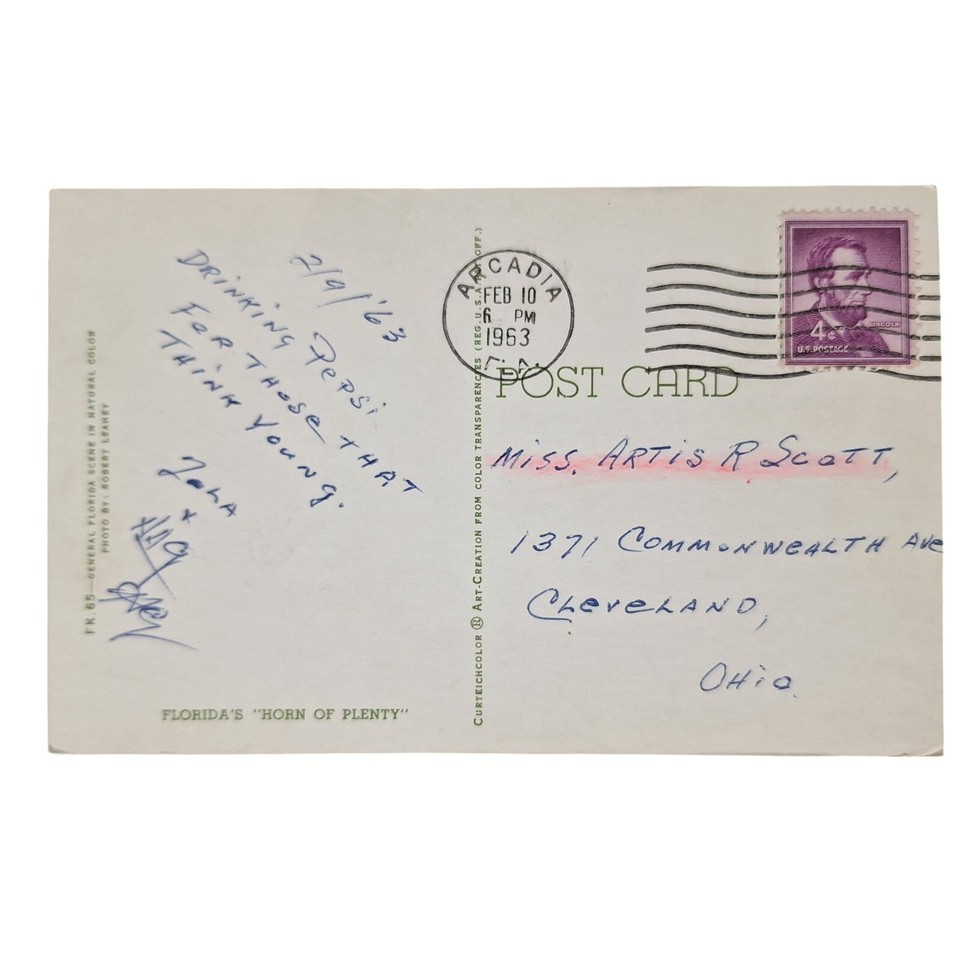 2/9/'63
DRINKING PEPSI
FOR THOSE THAT
THINK YOUNG.
+
ARCADIA
FEB 10
6 PM
1963
FLA.
LINCOLN
4¢
U.S. POSTAGE
POST CARD
MISS. ARTIS R SCOTT,
1371 COMMONWEALTH AVE
CLEVELAND,
OHIO.
FK.65—GENERAL FLORIDA SCENE IN NATURAL COLOR
PHOTO BY: ROBERT LEAHEY
FLORIDA'S "HORN OF PLENTY"
CURTEICHCOLOR ® ART-CREATION FROM COLOR TRANSPARENCIES (REG. U.S.A. PAT. OFF.)